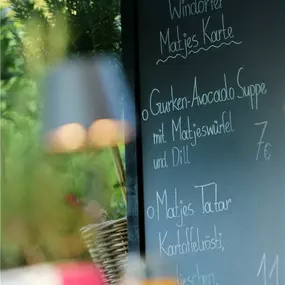 Windorfer
Matjes Karte
Gurken-Avocado Suppe
mit Matjeswürfel
und Dill 7€
Matjes Tatar
Kartoffelrösti,
11